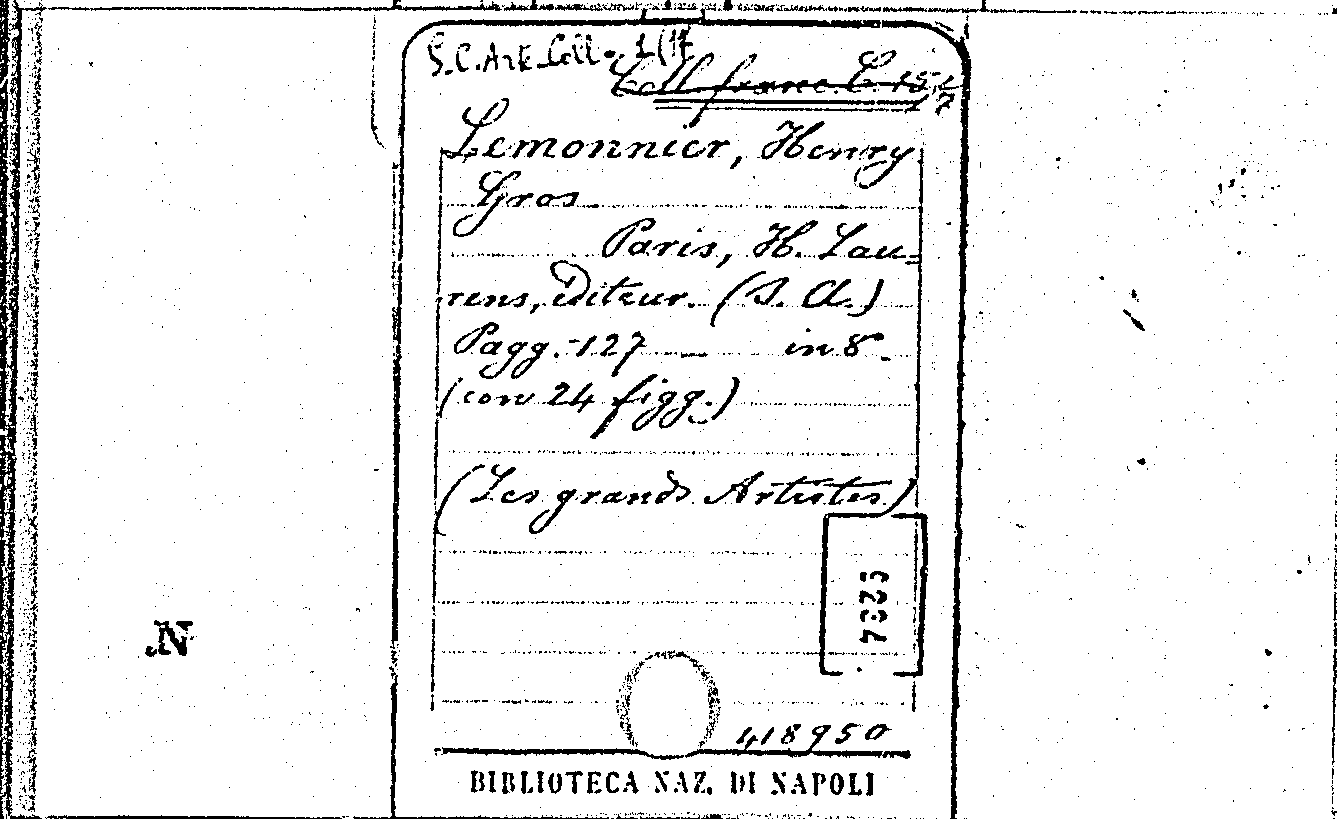 S.C. Art. Coll. 1 (17
Coll. franc. C. 151
17
Lemonnier, Henry
Gros
Paris, H. Lau=
rens, éditeur. (S. A.)
Pagg. 127 in 8°.
(con 24 figg.)
(Les grands Artistes)
418950
BIBLIOTECA NAZ. DI NAPOLI
N